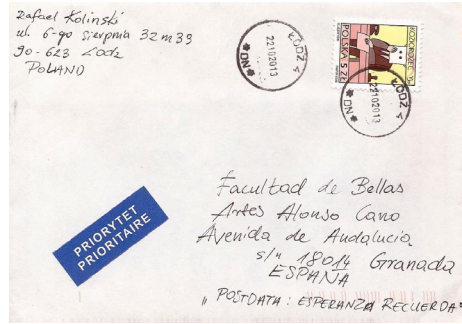 Rafael Kolinski
ul. 6-go Sierpnia 32 m 33
90-623 Lodz
POLAND
ŁÓDŹ 4
22102013
*ND*
ŁÓDŹ 4
22102013
*ND*
KOZIOROŻEC
POLSKA 5 ZŁ
PRIORYTET
PRIORITAIRE
Facultad de Bellas
Artes Alonso Cano
Avenida de Andalucia
s/n 18014 Granada
ESPAÑA
" POSTDATA : ESPERANZA RECUERDA"